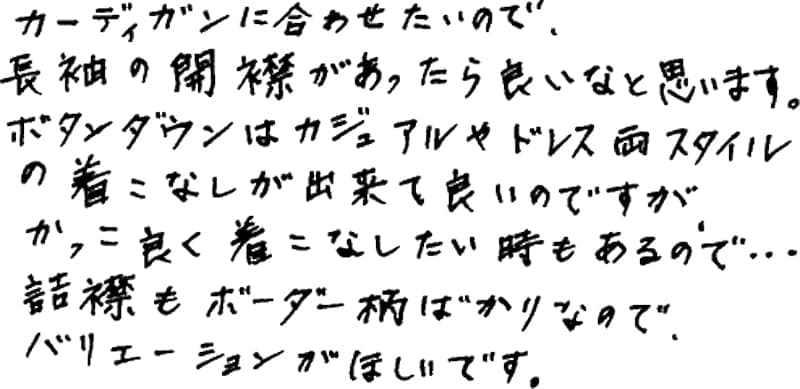 カーディガンに合わせたいので、
長袖の開襟があったら良いなと思います。
ボタンダウンはカジュアルやドレス両スタイル
の着こなしが出来て良いのですが
かっこ良く着こなしたい時もあるので…
詰襟もボーダー柄ばかりなので、
バリエーションがほしいです。